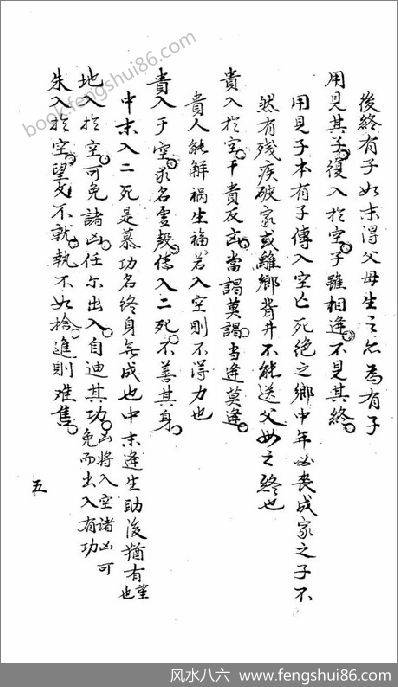 後終有子如末得父母生之亦為有子
用見其子復入於空子雖相逢不見其終
用見子本有子傳入空亡死絕之鄉中年必喪成家之子不
然有殘疾破家或離鄉背井不能送父母之終也
貴入於空干貴反亡當謁莫謁当逢莫逢
貴人能解禍生福若入空則不得力也
貴入于空求名虛毀傳入二死不善其身
中末入二死是慕功名終身無成也中末逢生助後猶有望也
地入於空可免諸凶任尔出入自迪其功凶將入空諸凶可免而出入有功
朱入於空望文不就執不如捨進則难售
五
book.fengshui86.com
风水八六 www.fengshui86.com